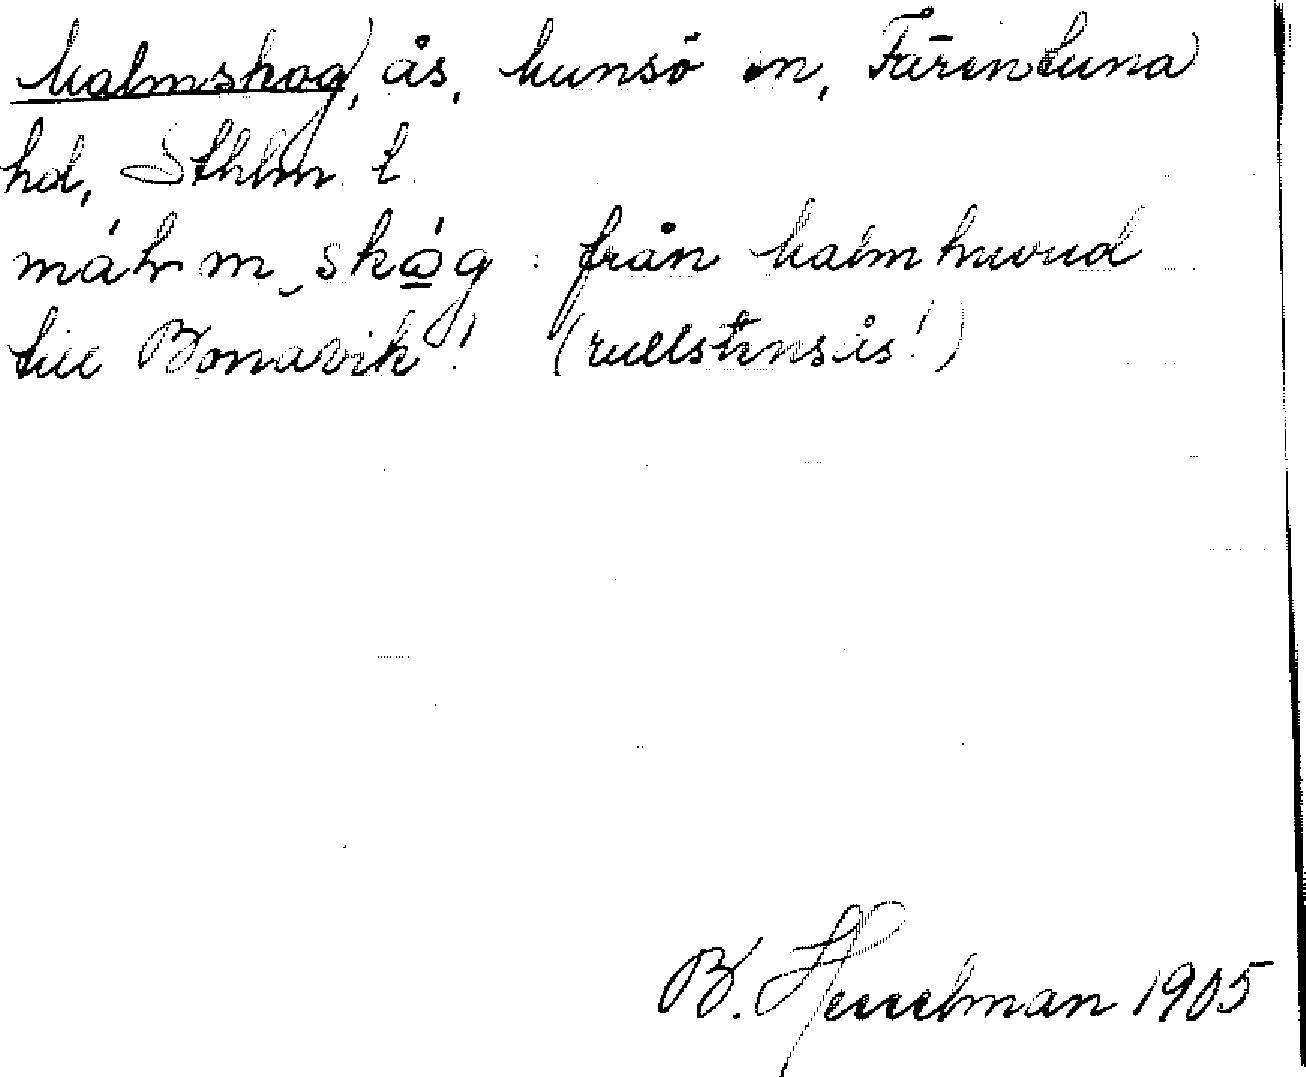 Malmskog, ås, Munsö sn, Färentuna
hd, Sthlm l
målm, skóg från Malmhuvud
till Bonavik! (rullstensås!)
B. Hesselman 1905